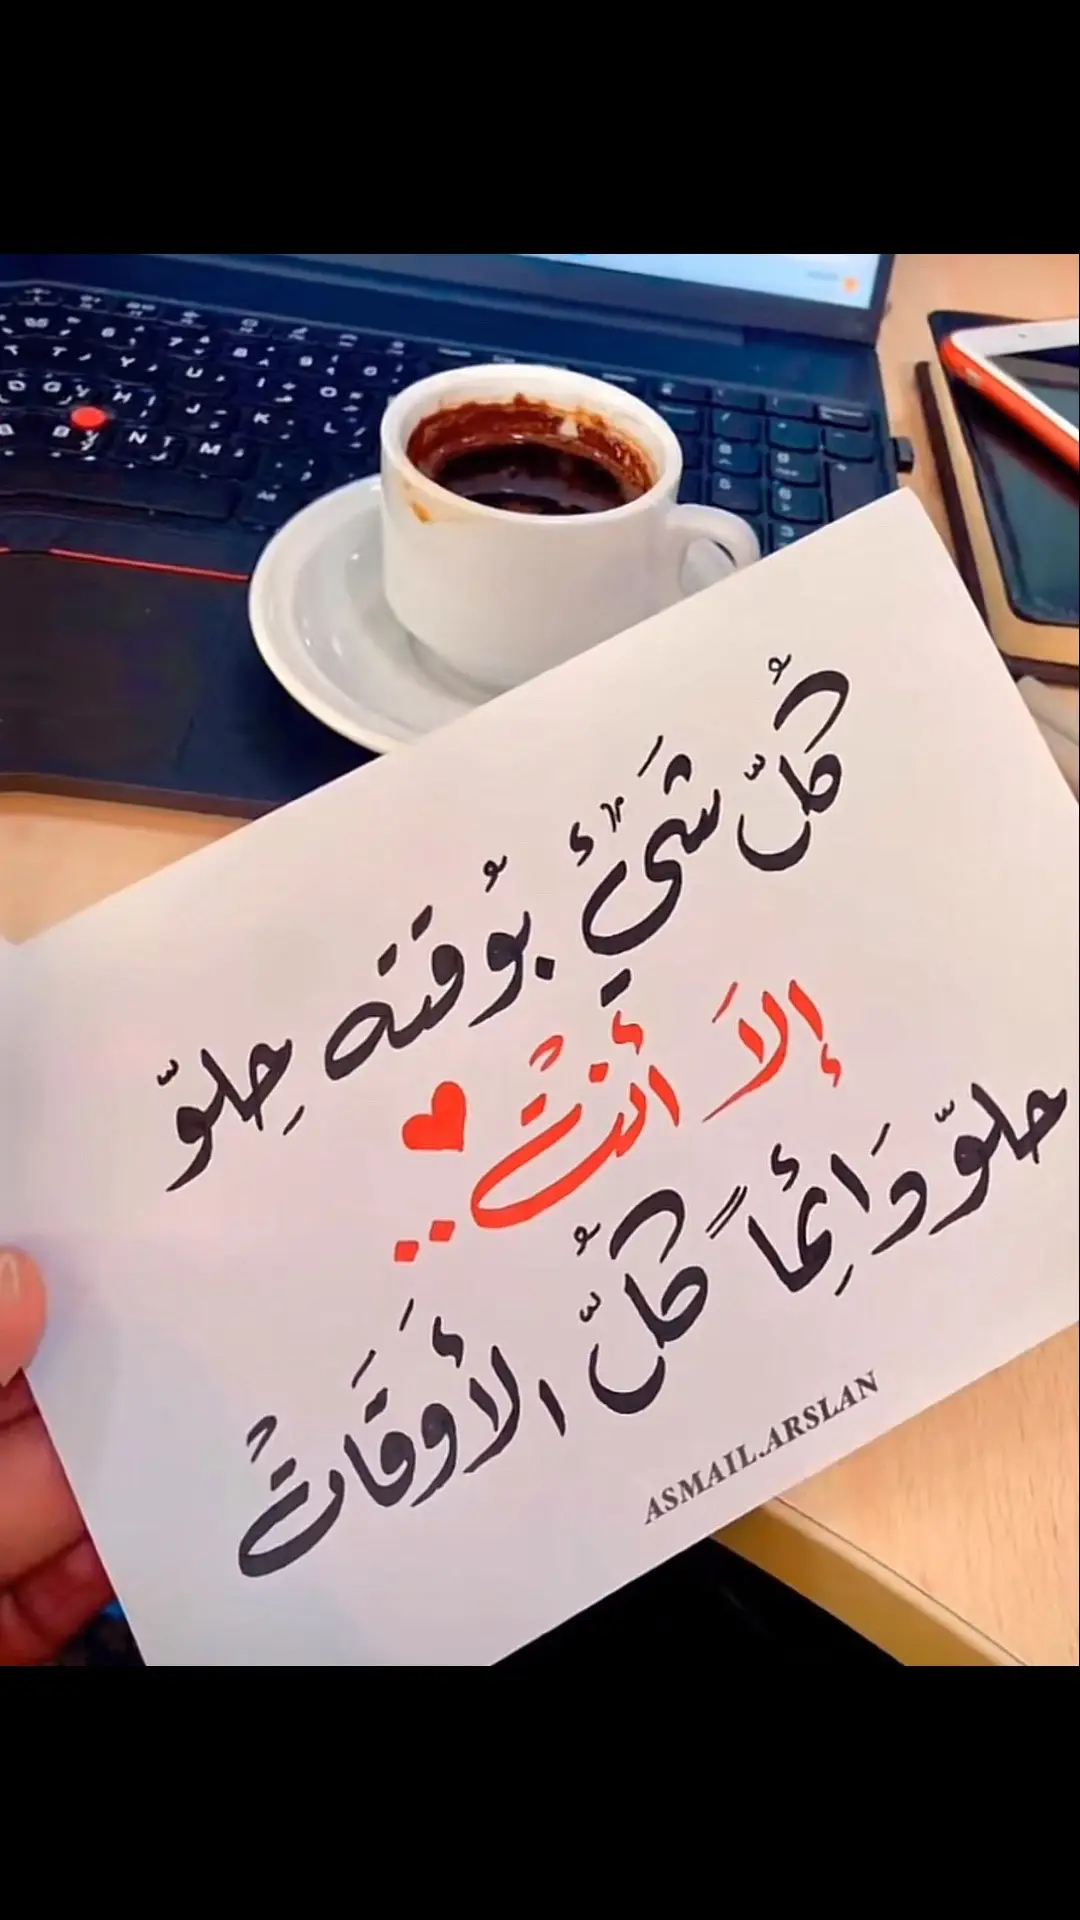 كُلّ شَيْئٍ بوُقته حِلوّ
إلاَ أنتْ ..
حلوّ دَائِماً كُلّ الأَوقَاتْ
ASMAIL.ARSLAN